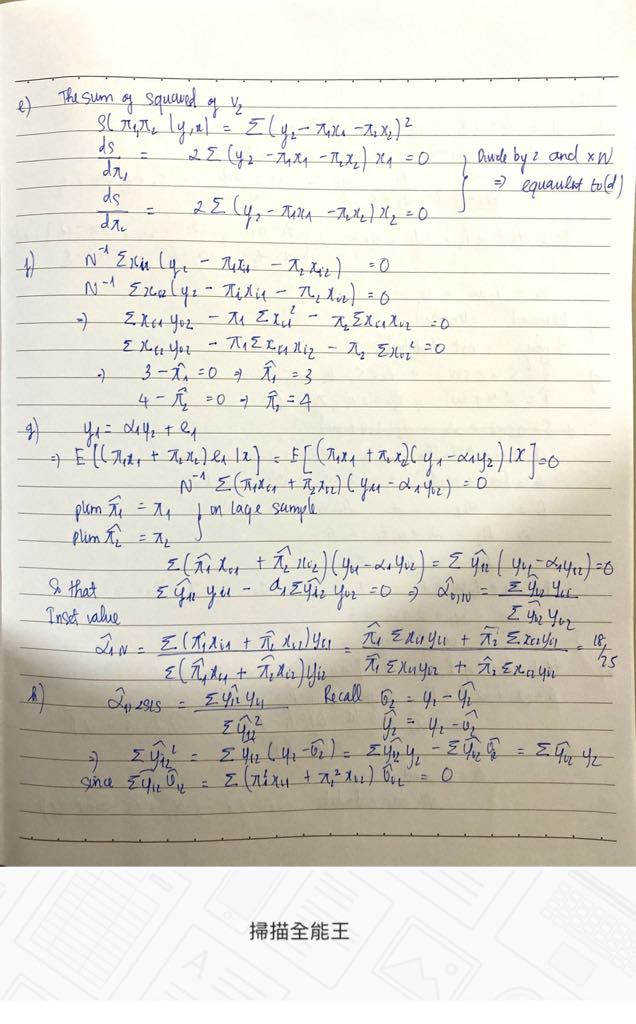 e) The sum of squared of V₂
S(π₁π₂ |y,x| = Σ(y₂ - π₁x₁ - π₂x₂)²
ds/dπ₁ = 2Σ(y₂ - π₁x₁ - π₂x₂) x₁ = 0
ds/dπ₂ = 2Σ(y₂ - π₁x₁ - π₂x₂) x₂ = 0
Divide by 2 and xN
⇒ equaulent to (d)
f) N⁻¹ Σxᵢ₁(y₂ - π₁xᵢ₁ - π₂xᵢ₂) = 0
N⁻¹ Σxᵢ₂(y₂ - π₁xᵢ₁ - π₂xᵢ₂) = 0
⇒ Σxᵢ₁yᵢ₂ - π₁Σxᵢ₁² - π₂Σxᵢ₁xᵢ₂ = 0
Σxᵢ₂yᵢ₂ - π₁Σxᵢ₁xᵢ₂ - π₂Σxᵢ₂² = 0
⇒ 3 - π̂₁ = 0 ⇒ π̂₁ = 3
4 - π̂₂ = 0 ⇒ π̂₂ = 4
g) y₁ = α₁y₂ + e₁
⇒ E[(π₁x₁ + π₂x₂)e₁|x] = E[(π₁x₁ + π₂x₂)(y₁ - α₁y₂)|x] = 0
N⁻¹ Σ(π₁xᵢ₁ + π₂xᵢ₂)(yᵢ₁ - α₁yᵢ₂) = 0
plim π̂₁ = π₁
plim π̂₂ = π₂
in lage sample
Σ(π̂₁xᵢ₁ + π̂₂xᵢ₂)(yᵢ₁ - α₁yᵢ₂) = Σŷᵢ₂(yᵢ₁ - α₁yᵢ₂) = 0
So that Σŷᵢ₂yᵢ₁ - α₁Σŷᵢ₂yᵢ₂ = 0 ⇒ α̂₁,IV = Σŷᵢ₂yᵢ₁ / Σŷᵢ₂yᵢ₂
Inset value
α̂₁IV = Σ(π̂₁xᵢ₁ + π̂₂xᵢ₂)yᵢ₁ / Σ(π̂₁xᵢ₁ + π̂₂xᵢ₂)yᵢ₂ = π̂₁Σxᵢ₁yᵢ₁ + π̂₂Σxᵢ₂yᵢ₁ / π̂₁Σxᵢ₁yᵢ₂ + π̂₂Σxᵢ₂yᵢ₂ = 18/25
h) α̂₁,2SLS = Σŷᵢ₂yᵢ₁ / Σŷᵢ₂² Recall v̂₂ = y₂ - ŷ₂
ŷ₂ = y₂ - v̂₂
⇒ Σŷᵢ₂² = Σŷᵢ₂(y₂ - v̂₂) = Σŷᵢ₂y₂ - Σŷᵢ₂v̂₂ = Σŷᵢ₂y₂
since Σŷᵢ₂v̂ᵢ₂ = Σ(π̂₁xᵢ₁ + π̂₂xᵢ₂)v̂ᵢ₂ = 0
掃描全能王